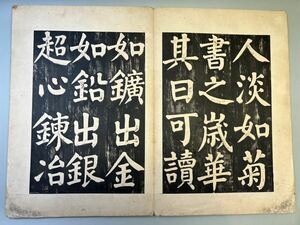 人淡如菊
書之歲華
其曰可讀
如鑛出金
如鉛出銀
超心鍊冶